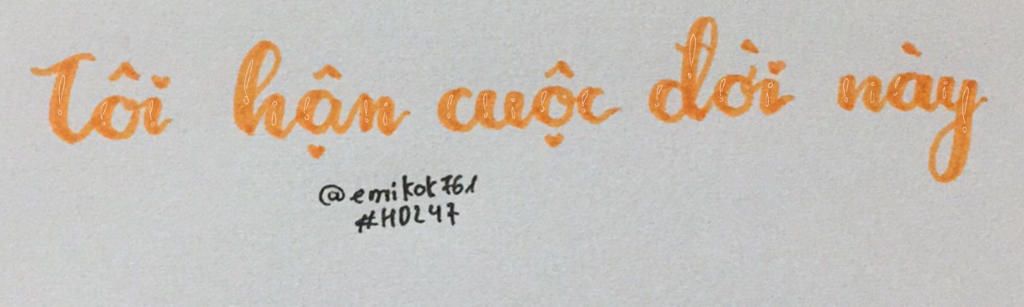 Tôi hận cuộc đời này
@emikok761
#HD247